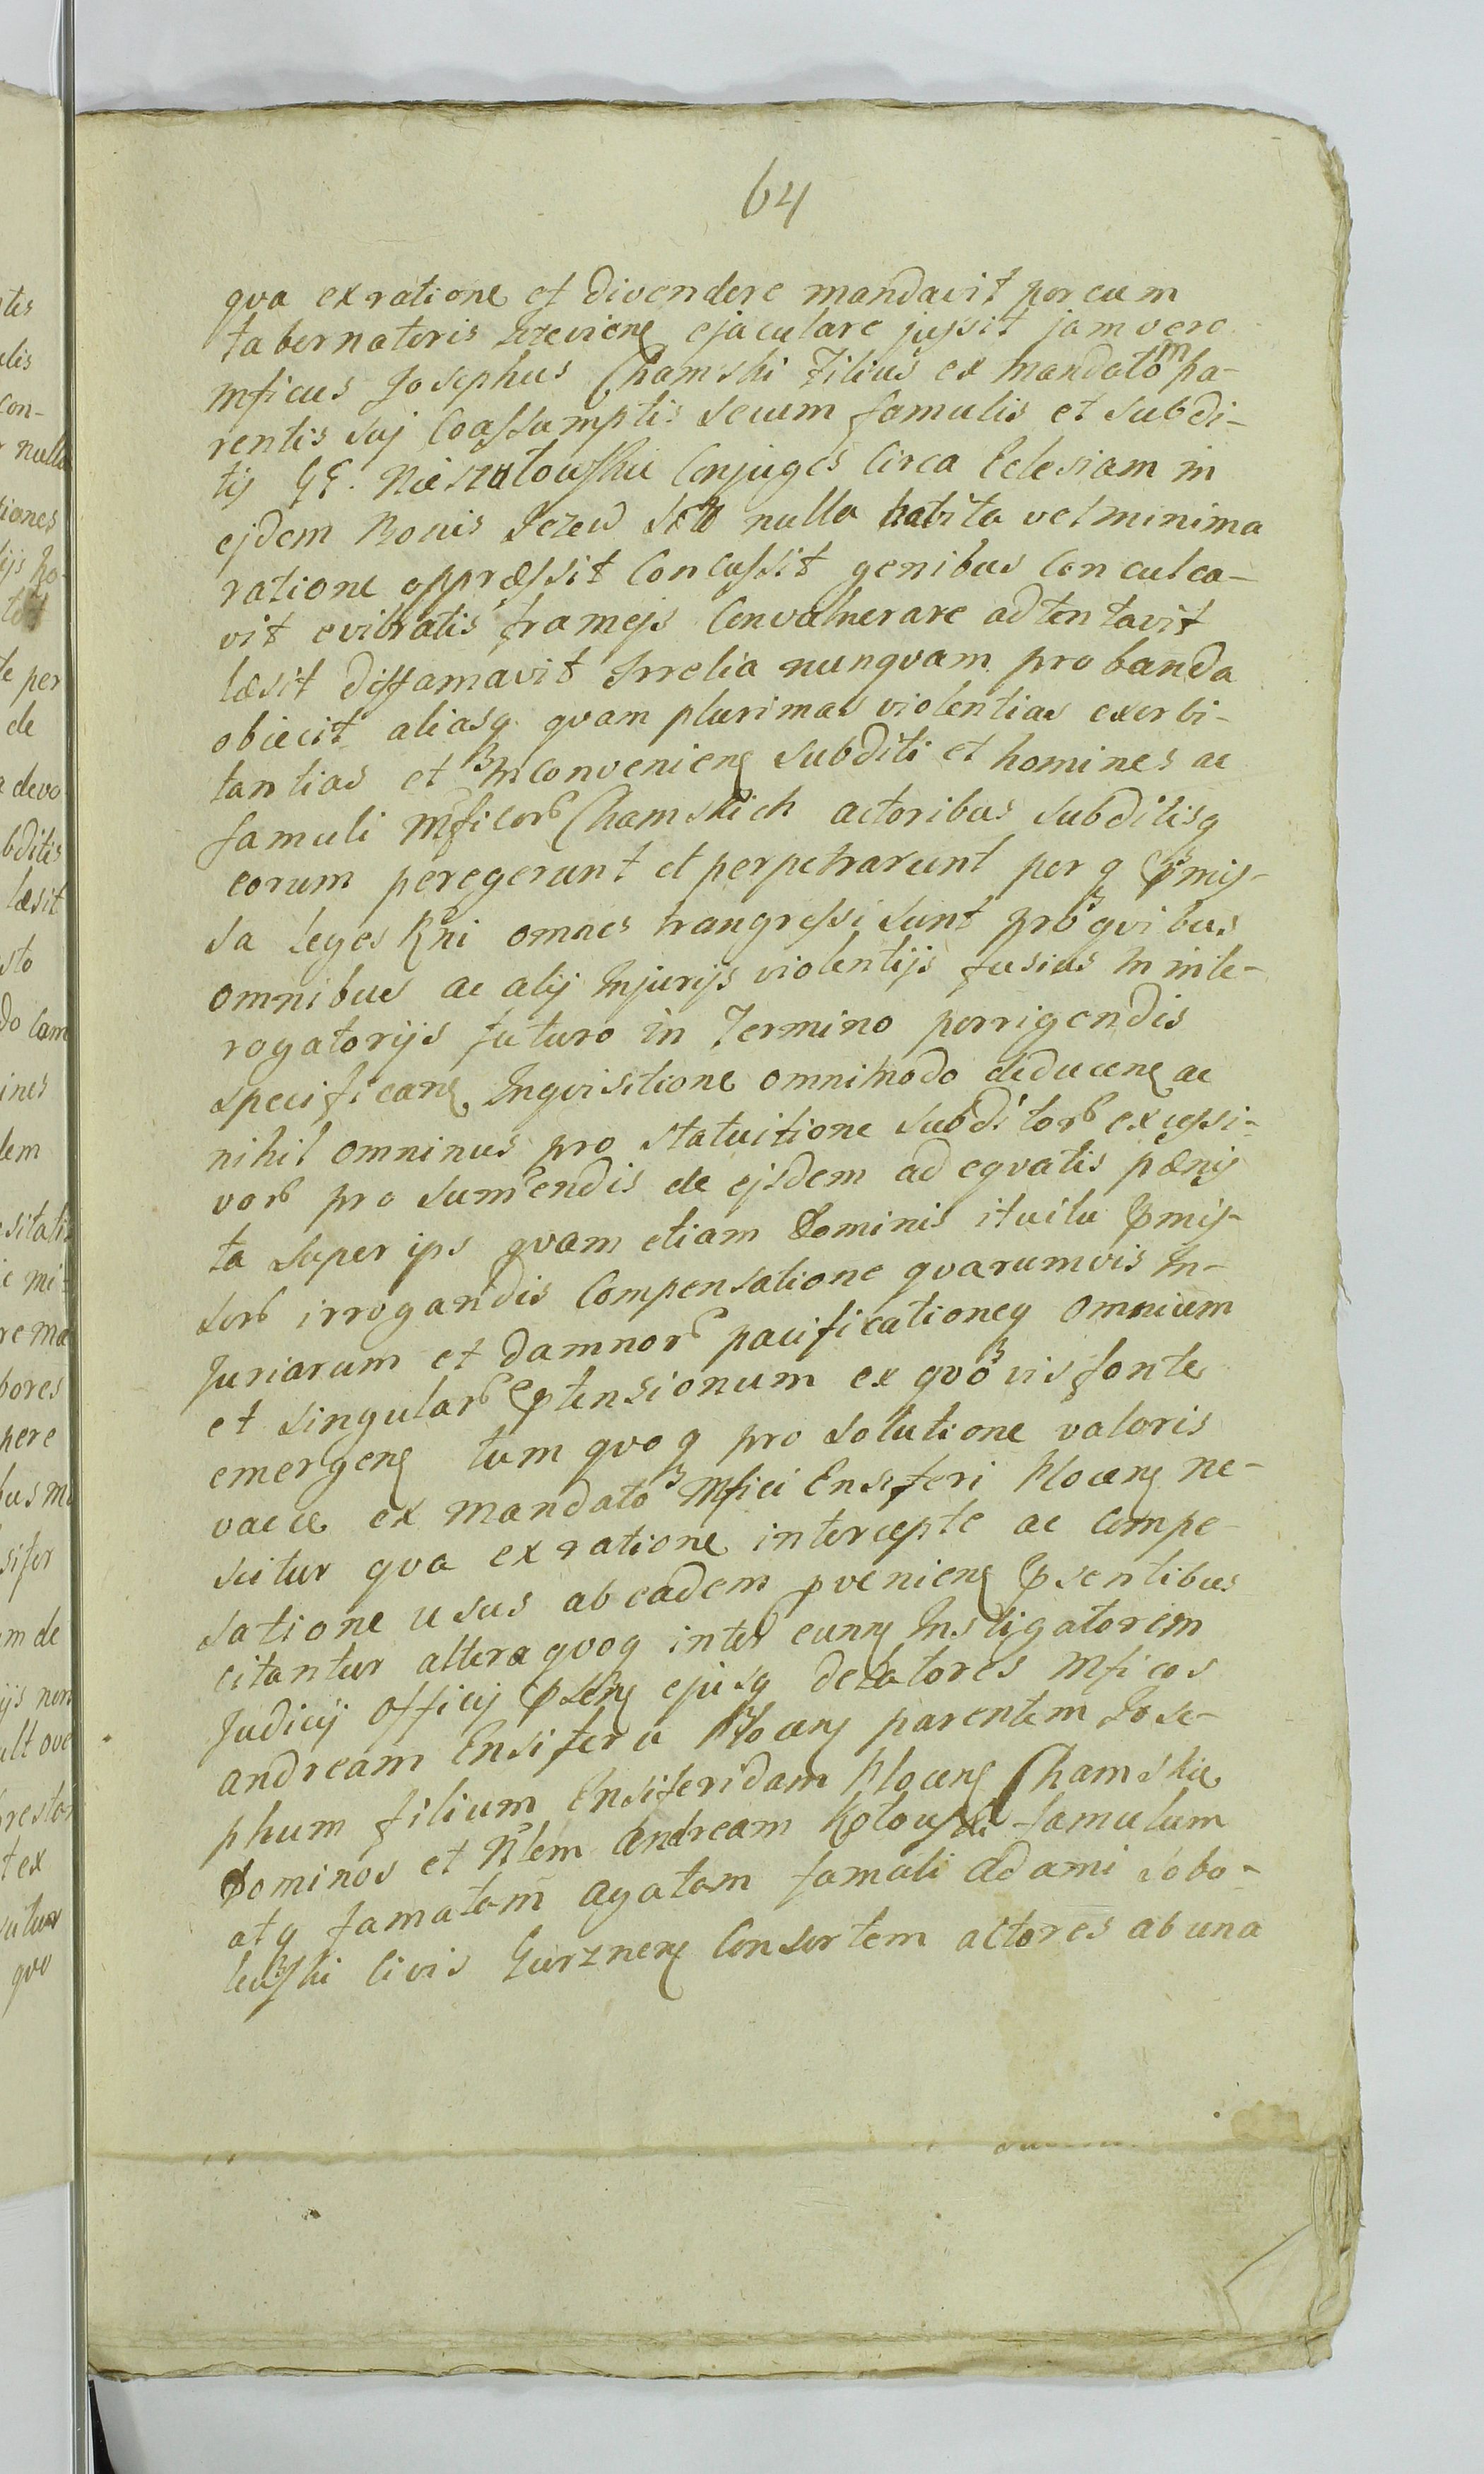 64
qva ex ratione et divendere mandavit porcum
tabernatoris Jezeviens ejaculare jussit jam vero
Mficus Josephus Chamski Filius ex mandato pa-
rentis suj Coassumptis secum famulis et subdi-
tis GG. Niesztowskie Conjuges Circa Eclesiam in
ejdem Bonis Jezew nulla habita vel minima
ratione oppræssit Concussit genibus Conculca-
vit evibratis framejs Convulnerare adtentavit
læsit diffamavit Irrelia nunqvam probanda
obiecit aliasq qvam plurimas violentias exorbi-
tantias et Inconveniens subditi et homines ac
famuli Mficor Chamskich actoribus subditisq
eorum peregerunt et perpetrarunt per q pmis-
sa leges Rni omnes trangressi sunt pro qvibus
omnibus ac alij Injurijs violentijs fusius In inte-
rogatorijs futuro in Termino porrigendis
specificans Inqvisitione omnimodo deducens ac
nihil omninus pro statuitione subditor excessi-
vor pro sumendis de ejsdem ad eqvatis pænis
ta super ips qvam etiam Dominis ituitu pmis-
sor irrogandis Compensatione qvarumvis In-
juriarum et damnor pacificationeq omnium
et singular ptensionum ex qvo vis fonte
emergens tum qvoq pro solutione valoris
vaccæ ex mandato Mfici Ensiferi Plocens ne-
scitur qva ex ratione interceptæ ac compe-
satione usus ab eadem pveniens psentibus
citantur altera qvoq inter eunq Instigatorem
Judicij Officij psens ejusq delatores Mficos
Andream Ensiferu Plocens parentem Jose-
phum filium Ensiferidam Plocens Chamskie
Dominos et Nlem Andream Kotowski famulum
atq famatam Agatam famati Adami Sobo-
lewski Civis Gurznens Consortem actores ab una